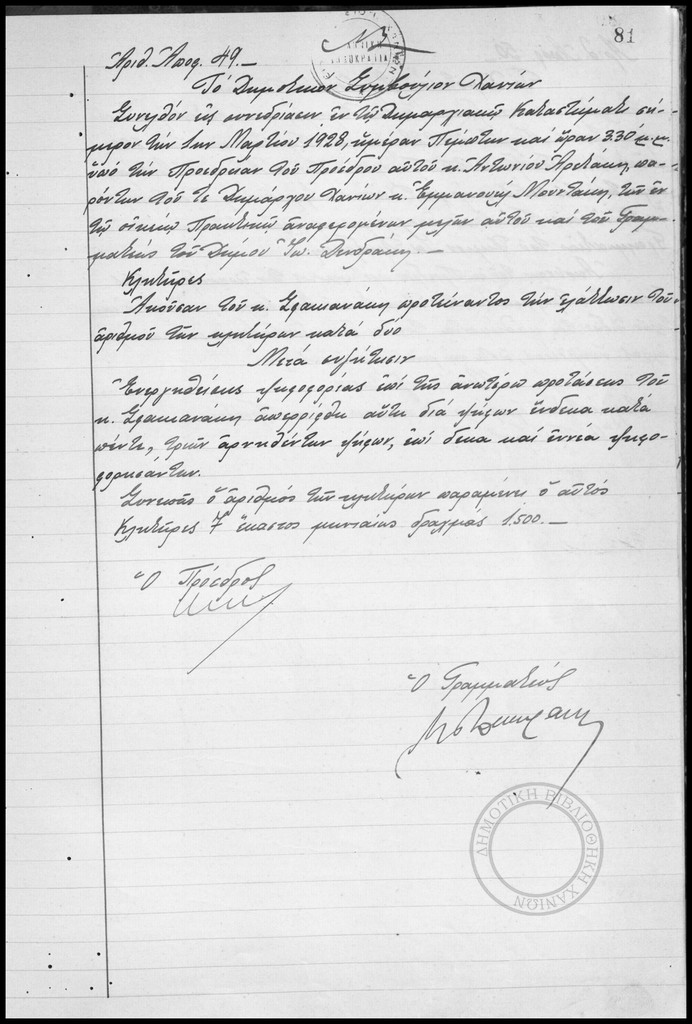 81
Ἀριθ. Ἀποφ. 49.–
Τὸ Δημοτικὸν Συμβούλιον Χανίων
Συνελθὸν εἰς συνεδρίασιν ἐν τῷ Δημαρχιακῷ Καταστήματι σή-
μερον τὴν 1ην Μαρτίου 1928, ἡμέραν Πέμπτην καὶ ὥραν 3.30 μ.μ.
ὑπὸ τὴν Προεδρείαν τοῦ Προέδρου αὐτοῦ κ. Ἀντωνίου Ἀρετάκη, πα-
ρόντων τοῦ τε Δημάρχου Χανίων κ. Ἐμμανουὴλ Μουντάκη, τῶν ἐν
τῷ οἰκείῳ Πρακτικῷ ἀναφερομένων μελῶν αὐτοῦ καὶ τοῦ Γραμ-
ματέως τοῦ Δήμου Ἰω. Δενδράκη.–
Κλητῆρες
Ἀκοῦσαν τοῦ κ. Σφακιανάκη προτείναντος τὴν ἐλάττωσιν τοῦ
ἀριθμοῦ τῶν κλητήρων κατὰ δύο
Μετὰ συζήτησιν
Ἐνεργηθείσης ψηφοφορίας ἐπὶ τῆς ἀνωτέρω προτάσεως τοῦ
κ. Σφακιανάκη ἀπερρίφθη αὕτη διὰ ψήφων ἕνδεκα κατὰ
πέντε, τριῶν ἀρνηθέντων ψήφων, ἐπὶ δέκα καὶ ἐννέα ψηφο-
φορησάντων.
Συνεπῶς ὁ ἀριθμὸς τῶν κλητήρων παραμένει ὁ αὐτός
Κλητῆρες 7 ἕκαστος μηνιαίως δραχμὰς 1.500.–
Ὁ Πρόεδρος
Ὁ Γραμματεύς
ΔΗΜΟΤΙΚΗ ΒΙΒΛΙΟΘΗΚΗ ΧΑΝΙΩΝ